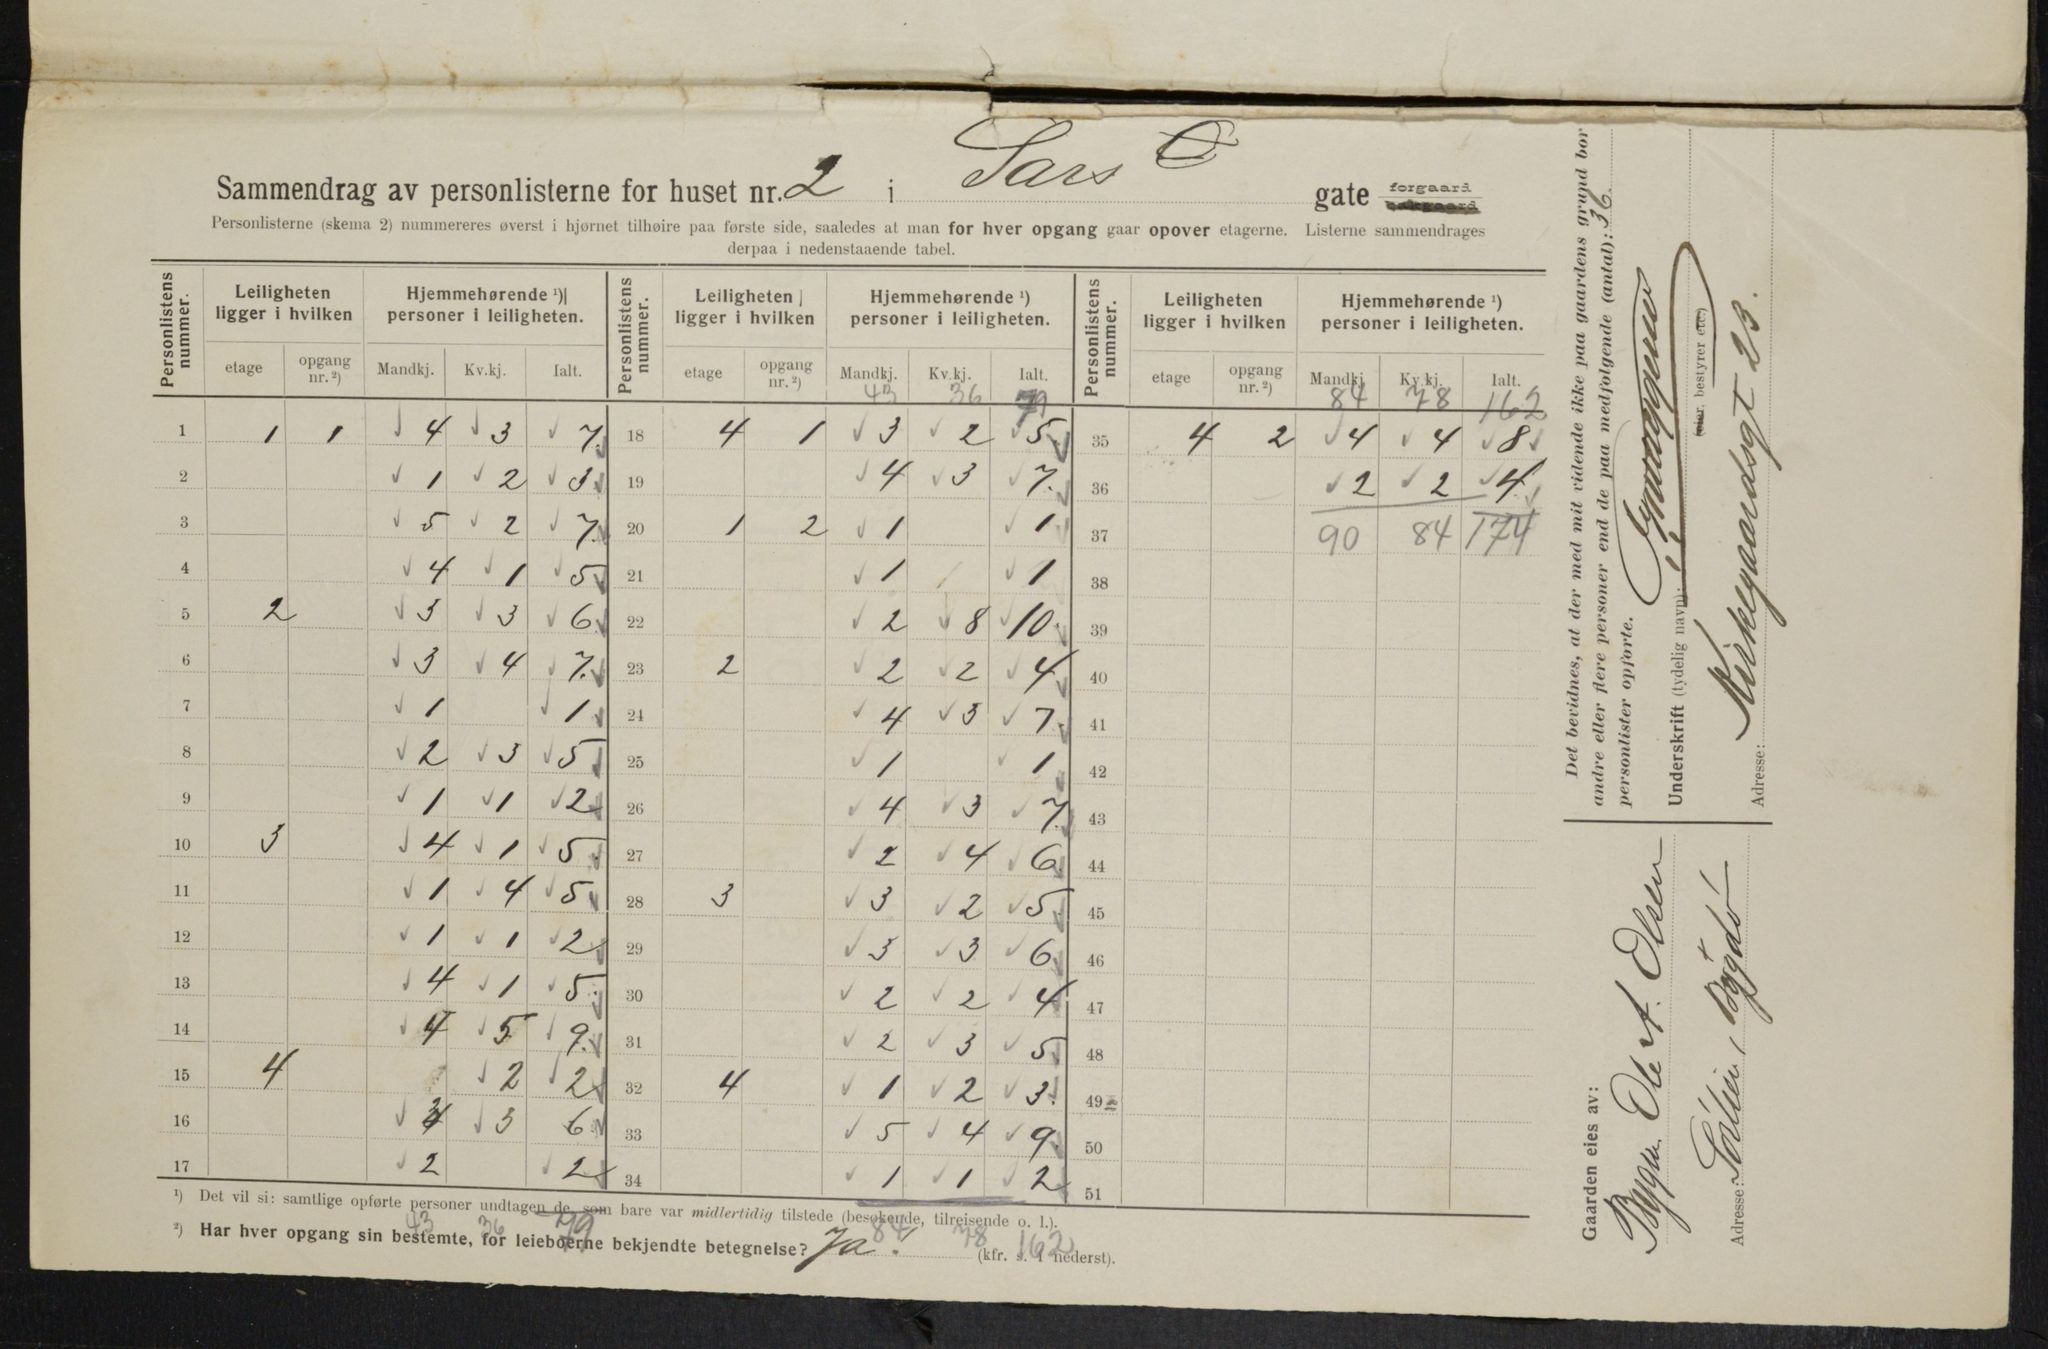 Sammendrag av personlisterne for huset nr. 2 i Sars gate forgaard bakgaard
Personlisterne (skema 2) nummereres øverst i hjørnet tilhøire paa første side, saaledes at man for hver opgang gaar opover etagerne. Listerne sammendrages
derpaa i nedenstaaende tabel.
Personlistens nummer. Leiligheten ligger i hvilken Hjemmehørende ¹) personer i leiligheten. Personlistens nummer. Leiligheten ligger i hvilken Hjemmehørende ¹) personer i leiligheten. Personlistens nummer. Leiligheten ligger i hvilken Hjemmehørende ¹) personer i leiligheten.
etage opgang nr. ²) Mandkj. Kv.kj. Ialt. etage opgang nr. ²) Mandkj. Kv.kj. Ialt. etage opgang nr. ²) Mandkj. Kv.kj. Ialt.
43 36 79 84 78 162
1 1 1 4 3 7 18 4 1 3 2 5 35 4 2 4 4 8
2 1 2 3 19 4 3 7 36 2 2 4
3 5 2 7 20 1 2 1 1 37 90 84 174
4 4 1 5 21 1 1 38
5 2 3 3 6 22 2 8 10 39
6 3 4 7 23 2 2 2 4 40
7 1 1 24 4 3 7 41
8 2 3 5 25 1 1 42
9 1 1 2 26 4 3 7 43
10 3 4 1 5 27 2 4 6 44
11 1 4 5 28 3 3 2 5 45
12 1 1 2 29 3 3 6 46
13 4 1 5 30 2 2 4 47
14 4 5 9 31 2 3 5 48
15 4 2 2 32 4 1 2 3 49
16 3 3 6 33 5 4 9 50
17 2 2 34 1 1 2 51
¹) Det vil si: samtlige opførte personer undtagen de som bare var midlertidig tilstede (besøkende, tilreisende o. l.).
43 36 79 84 78 162
²) Har hver opgang sin bestemte, for leieboerne bekjendte betegnelse? Ja! (kfr. s. 1 nederst).
Det bevidnes, at der med mit vidende ikke paa gaardens grund bor
andre eller flere personer end de paa medfølgende (antal): 36
personlister opførte.
Underskrift (tydelig navn):
(eier, bestyrer etc.)
Kirkegaardsgt 23.
Adresse:
Gaarden eies av:
Bygm. Ole A. Olsen
Adresse: Solhei, Bygdö